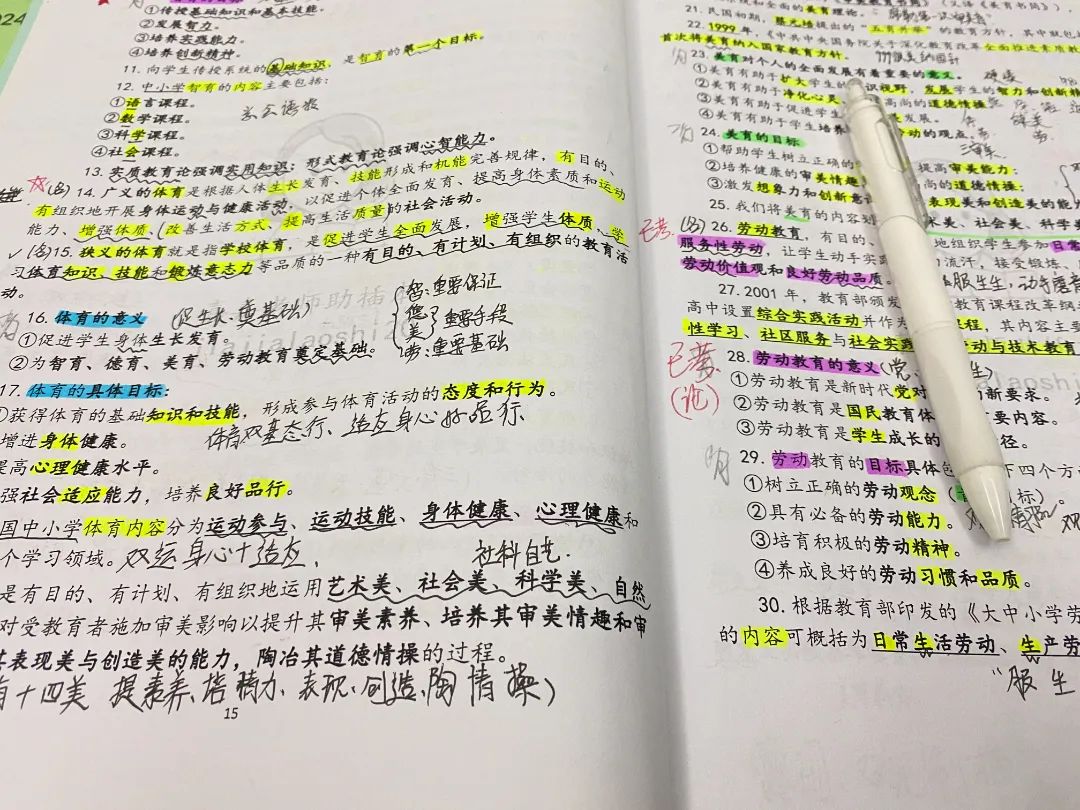 024
①传授基础知识和基本技能。
②发展智力。
③培养实践能力。
④培养创新精神。
11. 向学生传授系统的基础知识，是智育的第一个目标。
12. 中小学智育的内容主要包括：
①语言课程。
②数学课程。
③科学课程。
④社会课程。
13. 实质教育论强调实用知识；形式教育论强调心智能力。
(名) 14. 广义的体育是根据人体生长发育、技能形成和机能完善规律，有目的、
有组织地开展身体运动与健康活动，以促进个体全面发育、提高身体素质和运动
能力、增强体质、改善生活方式、提高生活质量的社会活动。
✓(名)15. 狭义的体育就是指学校体育，是促进学生全面发展，增强学生体质、学
习体育知识、技能和锻炼意志力等品质的一种有目的、有计划、有组织的教育活
动。
智:重要保证
16. 体育的意义 (促生长、奠基础)
德
美 重要手段
①促进学生身体生长发育。
劳:重要基础
②为智育、德育、美育、劳动教育奠定基础。
17. 体育的具体目标:
①获得体育的基础知识和技能，形成参与体育活动的态度和行为。
增进身体健康。
提高心理健康水平。
强社会适应能力，培养良好品行。
国中小学体育内容分为运动参与、运动技能、身体健康、心理健康和
个学习领域。双运身心+适应.
社科自艺.
是有目的、有计划、有组织地运用艺术美、社会美、科学美、自然
对受教育者施加审美影响以提升其审美素养、培养其审美情趣和审
其表现美与创造美的能力，陶冶其道德情操的过程。
有十四美 提素养、培精力、表现、创造、陶情操)
15
21. 民国初期，蔡元培提出的“五育并举”的教育方针，其中就包
22. 1999年，《中共中央国务院关于深化教育改革全面推进素质教
首次将美育纳入国家教育方针。
23. 美育对个人的全面发展有着重要的意义。
①美育有助于扩大学生的 识视野，发展学生的智力和创新精
②美育有助于净化心灵 高尚的道德情操
③美育有助于促进学生 发展。
④美育有助于学生培养 动的观点。
24. 美育的目标
①帮助学生树立正确的 提高审美能力;
②培养健康的审美情趣 高尚的道德情操;
③激发想象力和创新意识 表现美和创造美的能
25. 我们将美育的内容划 术美、社会美、科学美
已考 (名) 26. 劳动教育，有目的、 地组织学生参加日常
服务性劳动，让学生动手实践 流汗，接受锻炼、
劳动价值观和良好劳动品质。
27. 2001 年，教育部颁发 教育课程改革纲
高中设置综合实践活动并作为 课程，其内容主要
性学习、社区服务与社会实践 动与技术教育
已考
(论)
28. 劳动教育的意义(党、 生)
①劳动教育是新时代党对 新要求。
②劳动教育是国民教育体 要内容。
③劳动教育是学生成长的 径。
29. 劳动教育的目标具体包 下四个方
①树立正确的劳动观念 标)。
②具有必备的劳动能力。
③培育积极的劳动精神。
④养成良好的劳动习惯和品质。
30. 根据教育部印发的《大中小学劳
的内容可概括为日常生活劳动、生产劳
“服 生